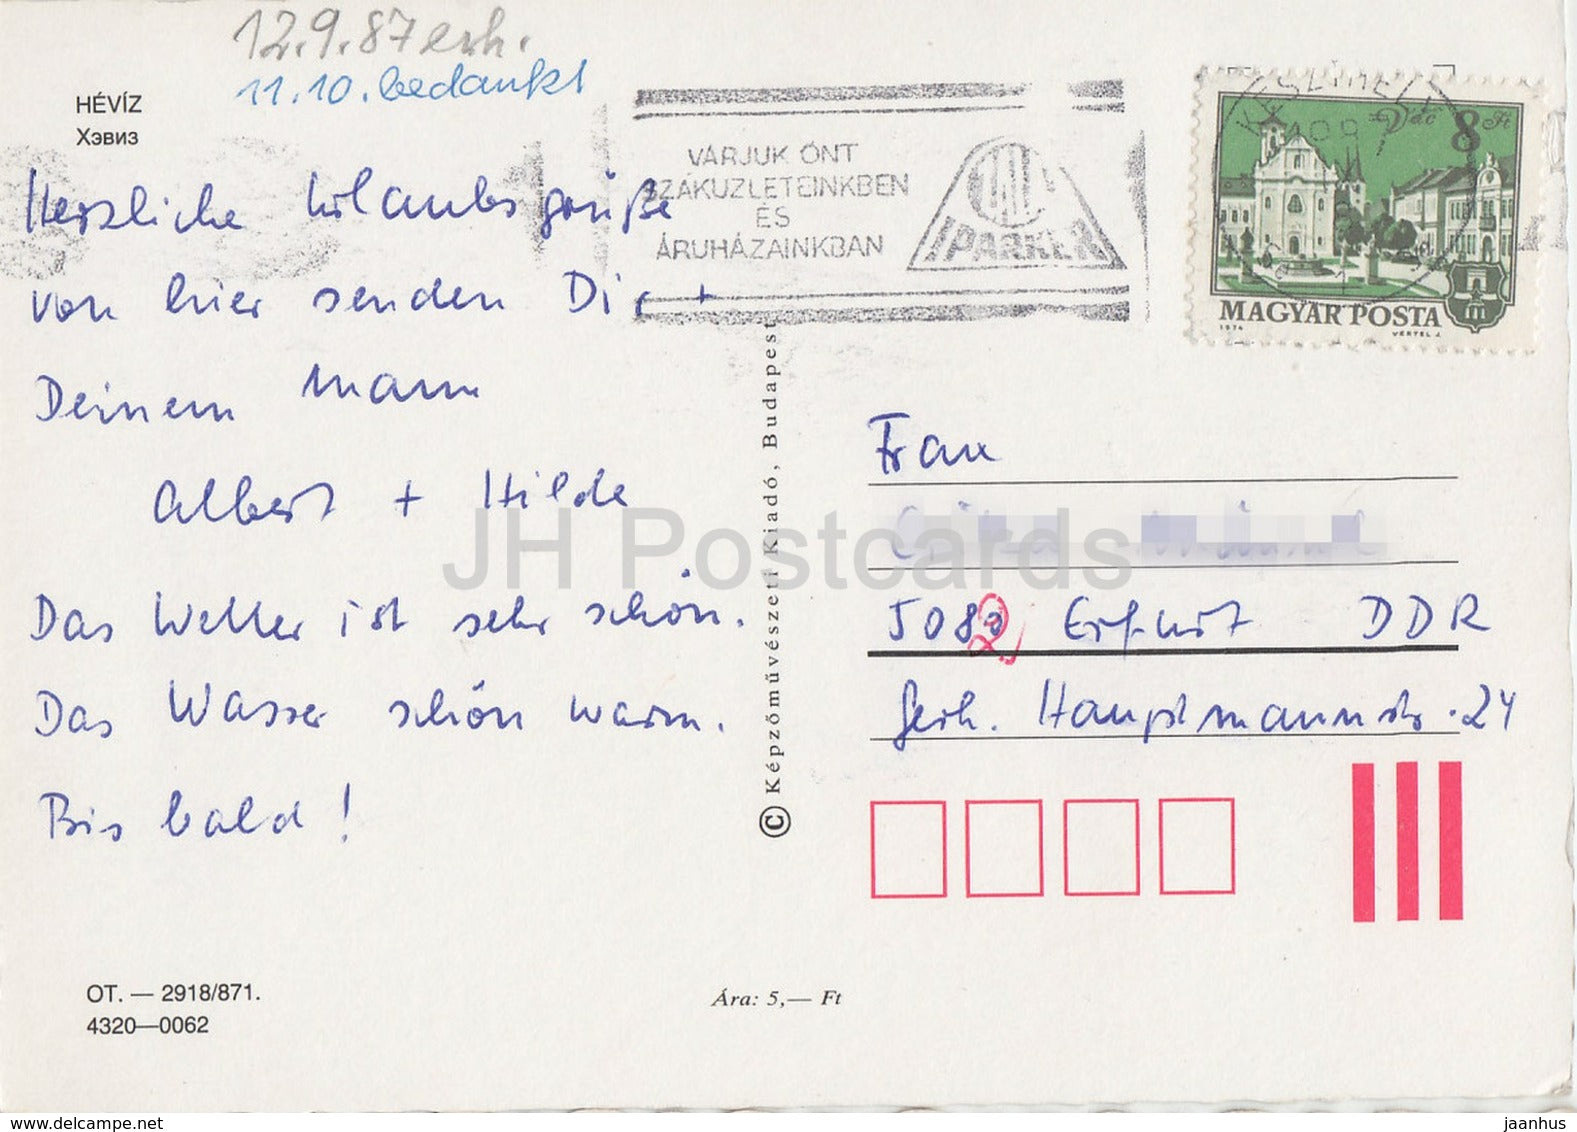 12.9.87 erh.
11.10. bedankt
HÉVÍZ
Хэвиз
Herzliche Urlaubsgrüße
von hier senden Dir +
Deinem Mann
Albert + Hilde
Das Wetter ist sehr schön.
Das Wasser schön warm.
Bis bald!
OT. — 2918/871.
4320—0062
VÁRJUK ÖNT
SZAKÜZLETEINKBEN
ÉS
ÁRUHÁZAINKBAN
IPARKER
© Képzőművészeti Kiadó, Budapest
Ára: 5,— Ft
KESZTHELY
Vác 8 Ft
MAGYAR POSTA
1974 VERTEL J.
Frau
5082 Erfurt DDR
Gerh. Hauptmannstr. 24
JH Postcards
www.delcampe.net
jaanhus